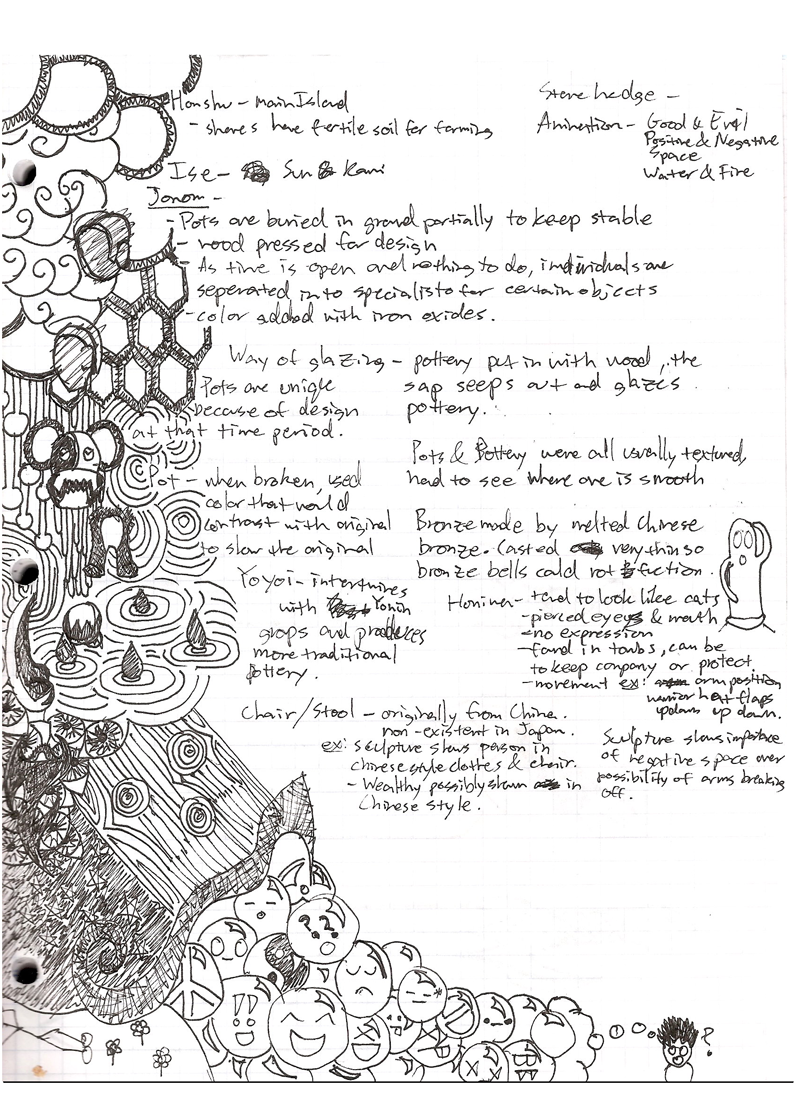 Honshu - main Island
- shores have fertile soil for farming
Stone hedge -
Animation - Good & Evil
Positive & Negative
Space
Water & Fire
Ise - Sun & Kami
Jomon -
- Pots are buried in ground partially to keep stable
- wood pressed for design
- As time is open and nothing to do, individuals are
seperated into specialists for certain objects
- color added with iron oxides.
Way of glazing - pottery put in with wood, the
sap seeps out and glazes
pottery.
Pots are unique
because of design
at that time period.
Pots & Pottery were all usually textured,
had to see where one is smooth
Pot - when broken, used
color that would
contrast with original
to show the original
Bronze made by melted Chinese
bronze. Casted very thin so
bronze bells could not function.
Yoyoi - intertwines
with Yomin
grops and produces
more traditional
pottery.
Haniwa - tend to look like cats
- pierced eyes & mouth
- no expression
- found in tombs, can be
to keep company or protect.
- movement ex: arm position
warrior hat flaps
up down.
Chair/Stool - originally from China.
non-existent in Japan.
ex: sculpture shows person in
chinese style clothes & chair.
- Wealthy possibly shown in
Chinese style.
Sculpture shows importance
of negative space over
possibility of arms breaking
off.
? ?
!! 
?